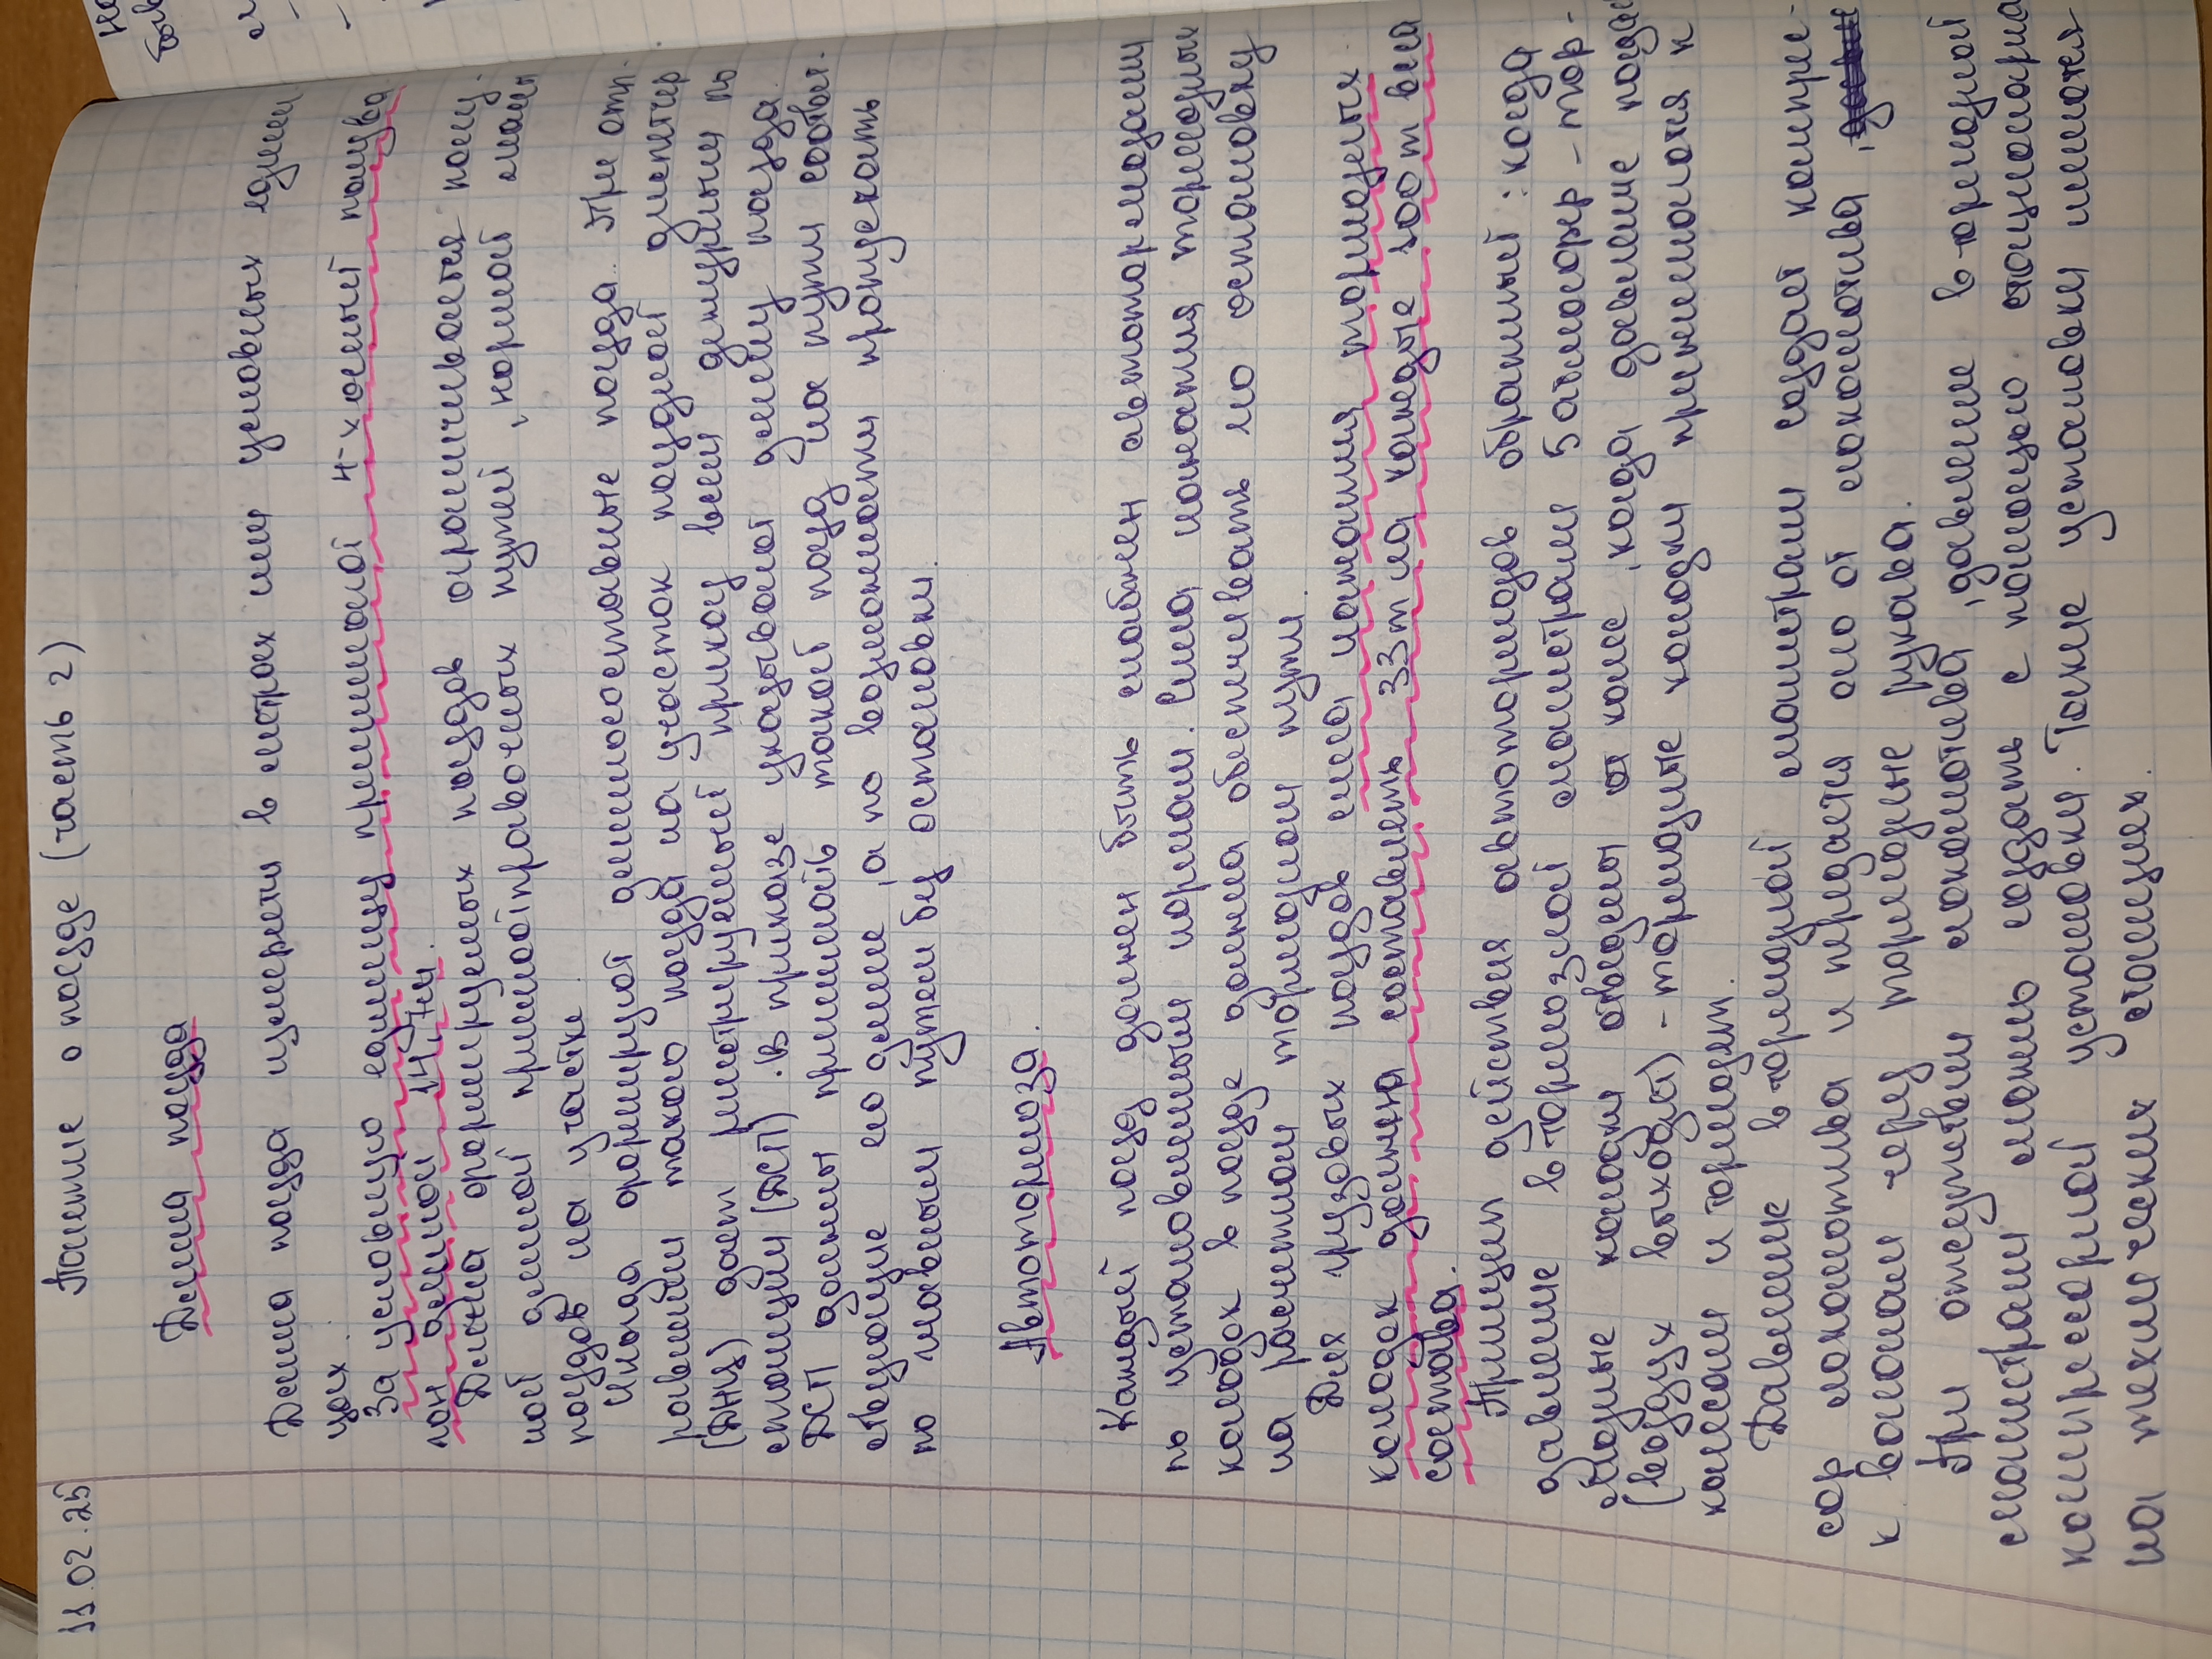 11.02.25
Понятие о поезде (часть 2)
Длина поезда
Длина поезда измерен в метрах или условных един
цах.
За условную единицу принимают 4-х осный полува
гон длиной 14,7 м.
Длина формируемых поездов ограничивается полез
ной длиной приемоотправочных путей, нормой длины
поездов на участке.
Иногда формируют длинносоставные поезда. При отп
равлении такого поезда на участок поездной диспетчер
(ДНЦ) дает регистрируемый приказ всем дежурным по
станции (ДСП). В приказе указывают длину поезда.
ДСП должны принимать такой поезд на пути соотвт.
ствующие по длине, а по возможности пропускать
по главным путям без остановки.
Автотормоза.
Каждый поезд должен быть снабжен автотормозами
по установленным нормам. Сила нажатия тормозных
колодок в поезде должна обеспечивать его остановку
на расчетном тормозном пути.
Для грузовых поездов сила нажатия тормозных
колодок должна составлять 33т на каждые 100т веса
состава.
Принцип действия автотормозов обратный: когда
давление в тормозной магистрали 5 атмосфер - тор-
мозные колодки отведены от колес, когда давление падает
(воздух выходит) - тормозные колодки прижимаются к
колесам и тормозят.
Давление в тормозной магистрали создает компрес-
сор локомотива и передается оно от локомотива
к вагонам через тормозные рукава.
При отсутствии локомотива, давление в тормозной
магистрали можно создать с помощью стационарно
компрессорной установки. Такие установки имеются
на технических станциях.